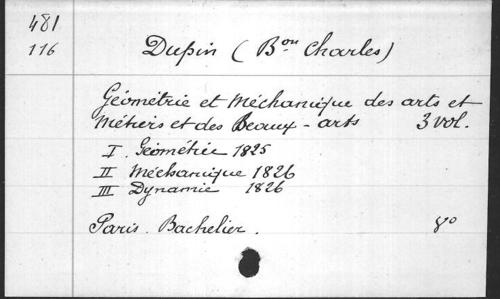 481
116
Dupin (Bon Charles)
Géométrie et Méchanique des arts et
Métiers et des Beaux-arts 3 vol.
I. Géométrie 1825
II Méchanique 1826
III Dynamie 1826
Paris. Bachelier. 8°